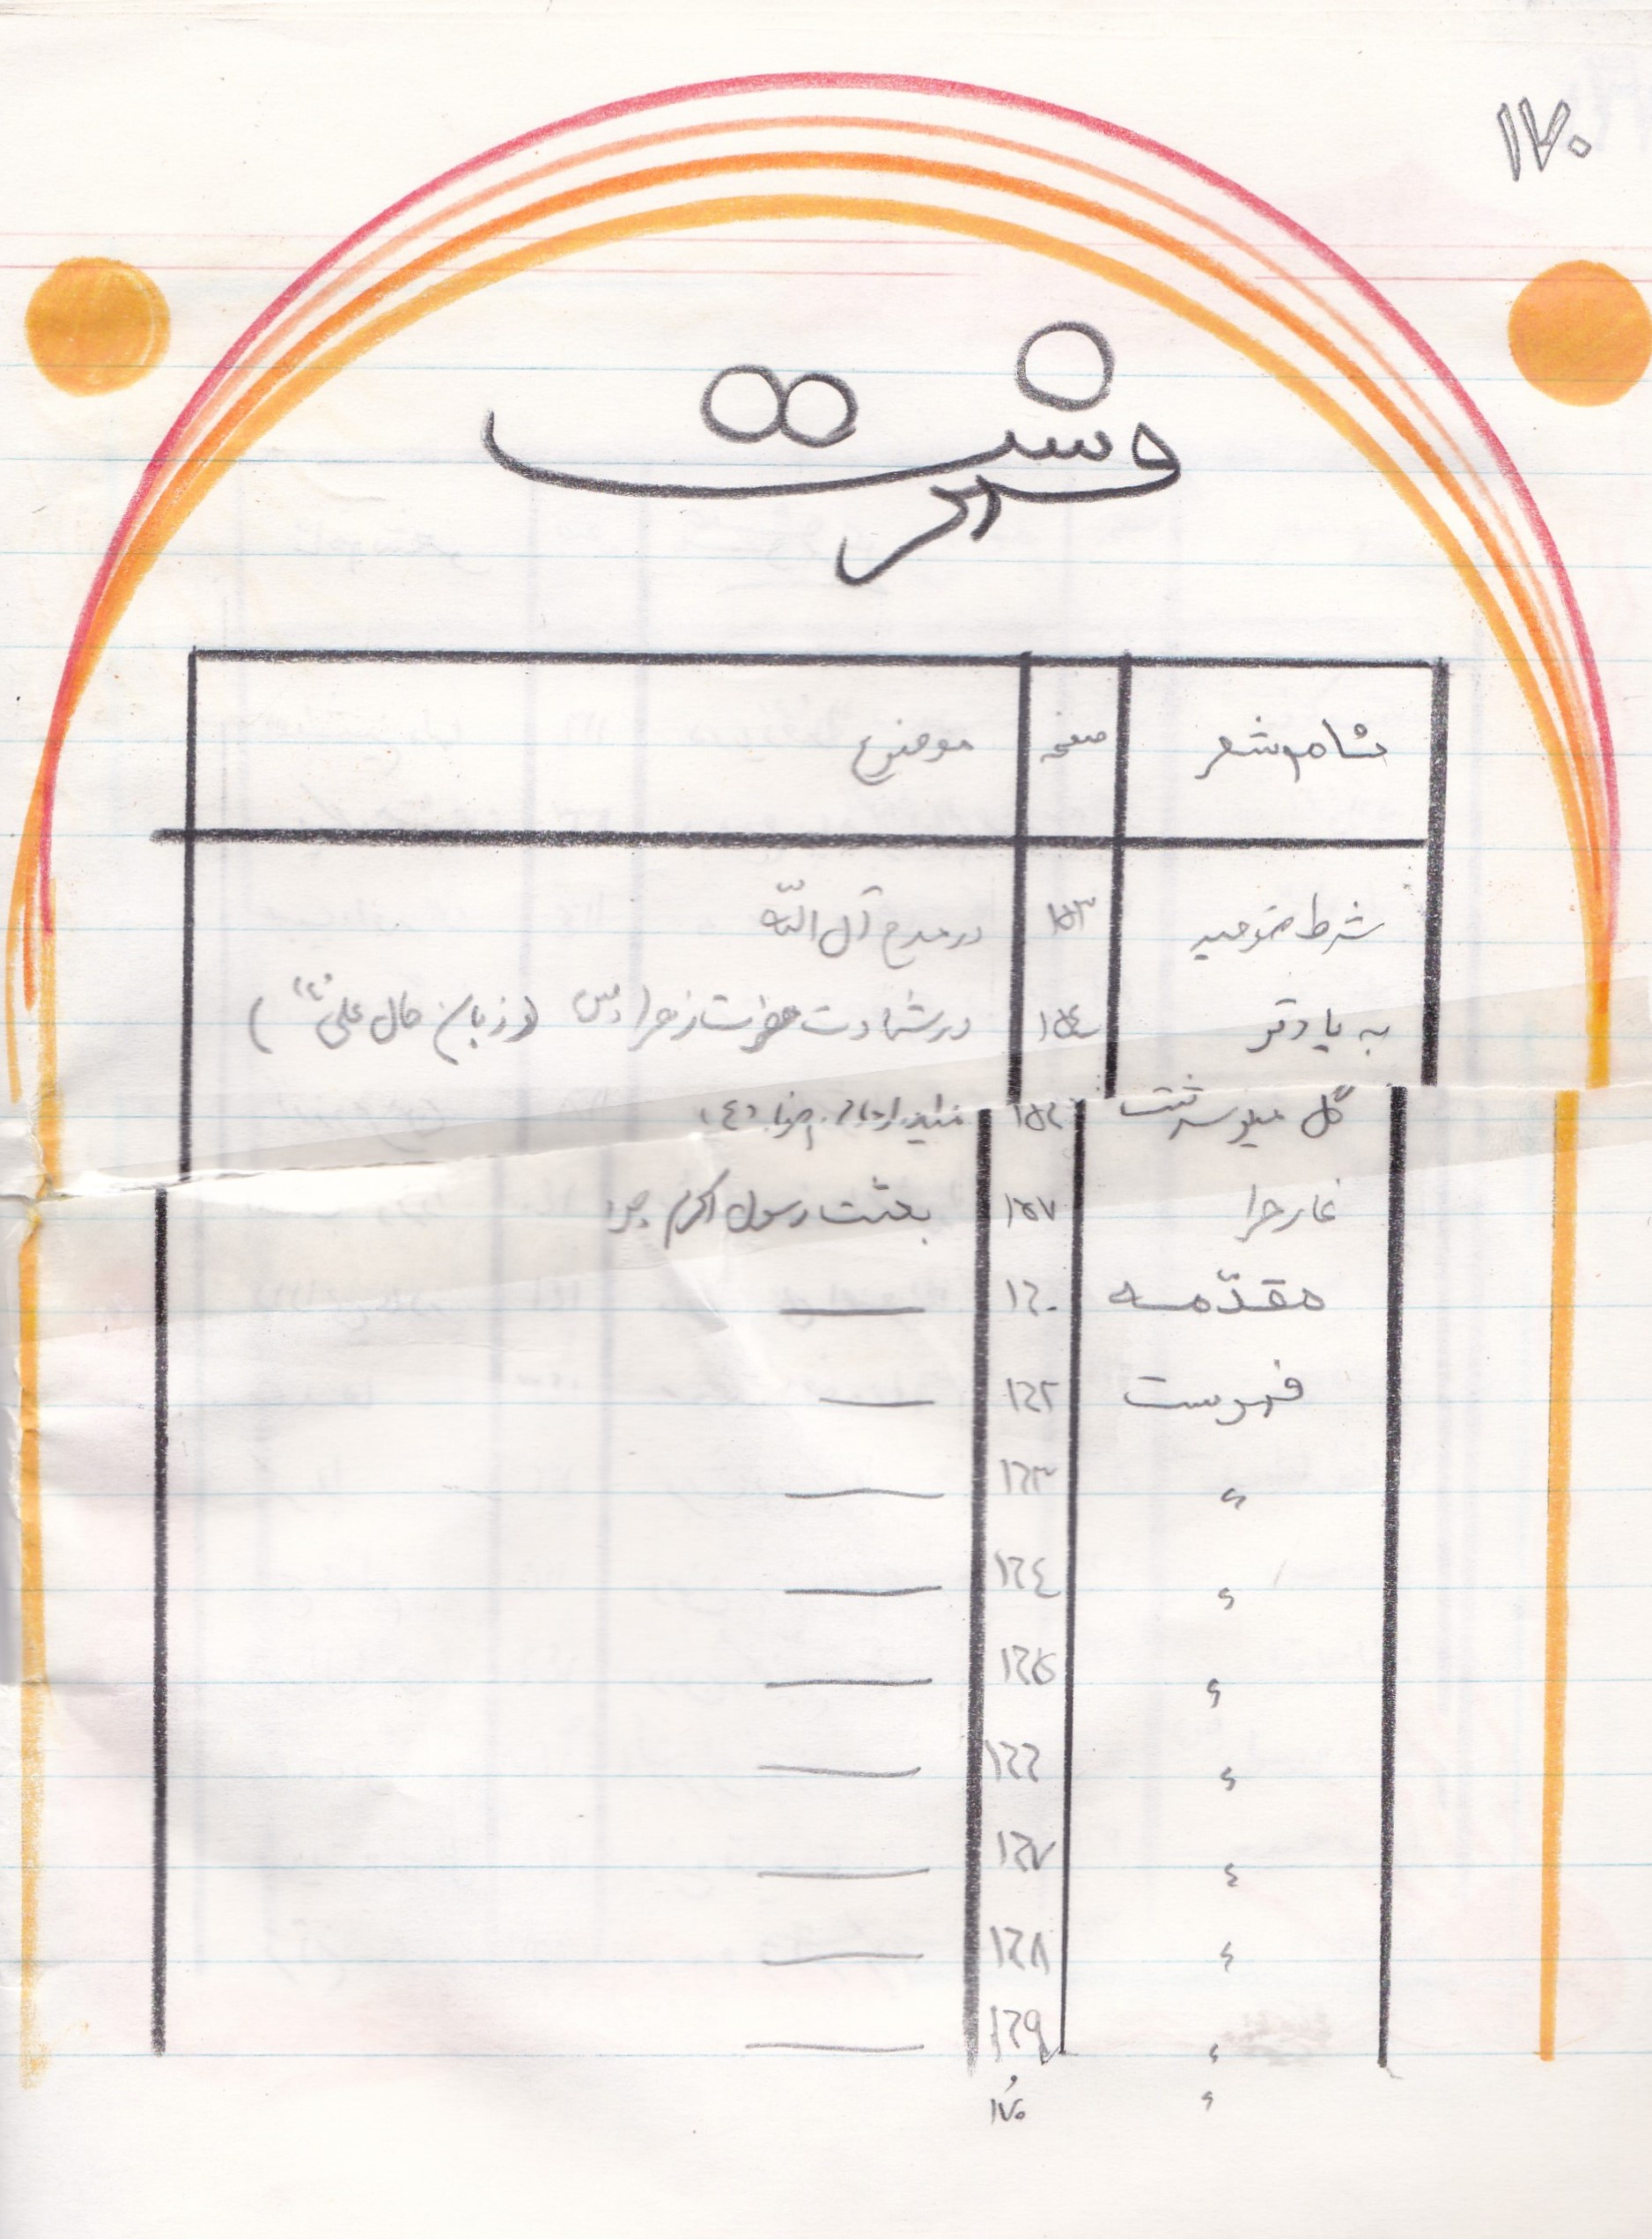 ۱۷۰
فهرست
نام شعر صفحه موضوع
شرط توحید ۱۵۳ در مدح آل الله
به یاد تو ۱۵٤ در شهادت حضرت زهرا (س) (از زبان حال علی "ع")
گل میو سرشت
غار حرا ۱۵۷ بعثت رسول اکرم
مقدّمه ۱۶۰ ــــ
فهرست ۱۶۲ ــــ
〃 ۱۶۳ ــــ
〃 ۱۶٤ ــــ
〃 ۱۶۵ ــــ
〃 ۱۶۶ ــــ
〃 ۱۶۷ ــــ
〃 ۱۶۸ ــــ
〃 ۱۶۹ ــــ
〃 ۱۷۰